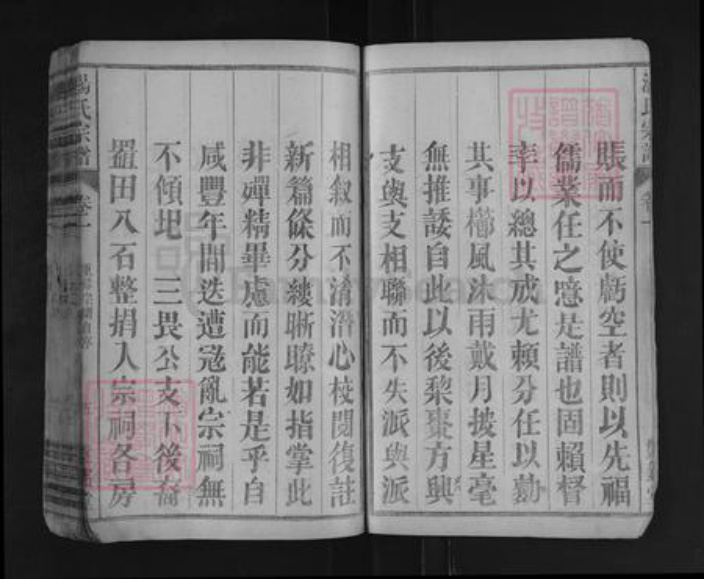 賬而不使虧空者則以先福
儒業任之噫是譜也固賴督
率以總其成尤賴分任以勷
其事櫛風沐雨戴月披星毫
無推諉自此以後黎棗方興
支與支相聯而不失派與派
相叙而不淆潛心校閱復註
新篇條分縷晰瞭如指掌此
非殫精畢慮而能若是乎自
咸豐年間迭遭寇亂宗祠無
不傾圯三畏公支下後裔
置田八石整捐入宗祠各房
氏宗譜
卷一